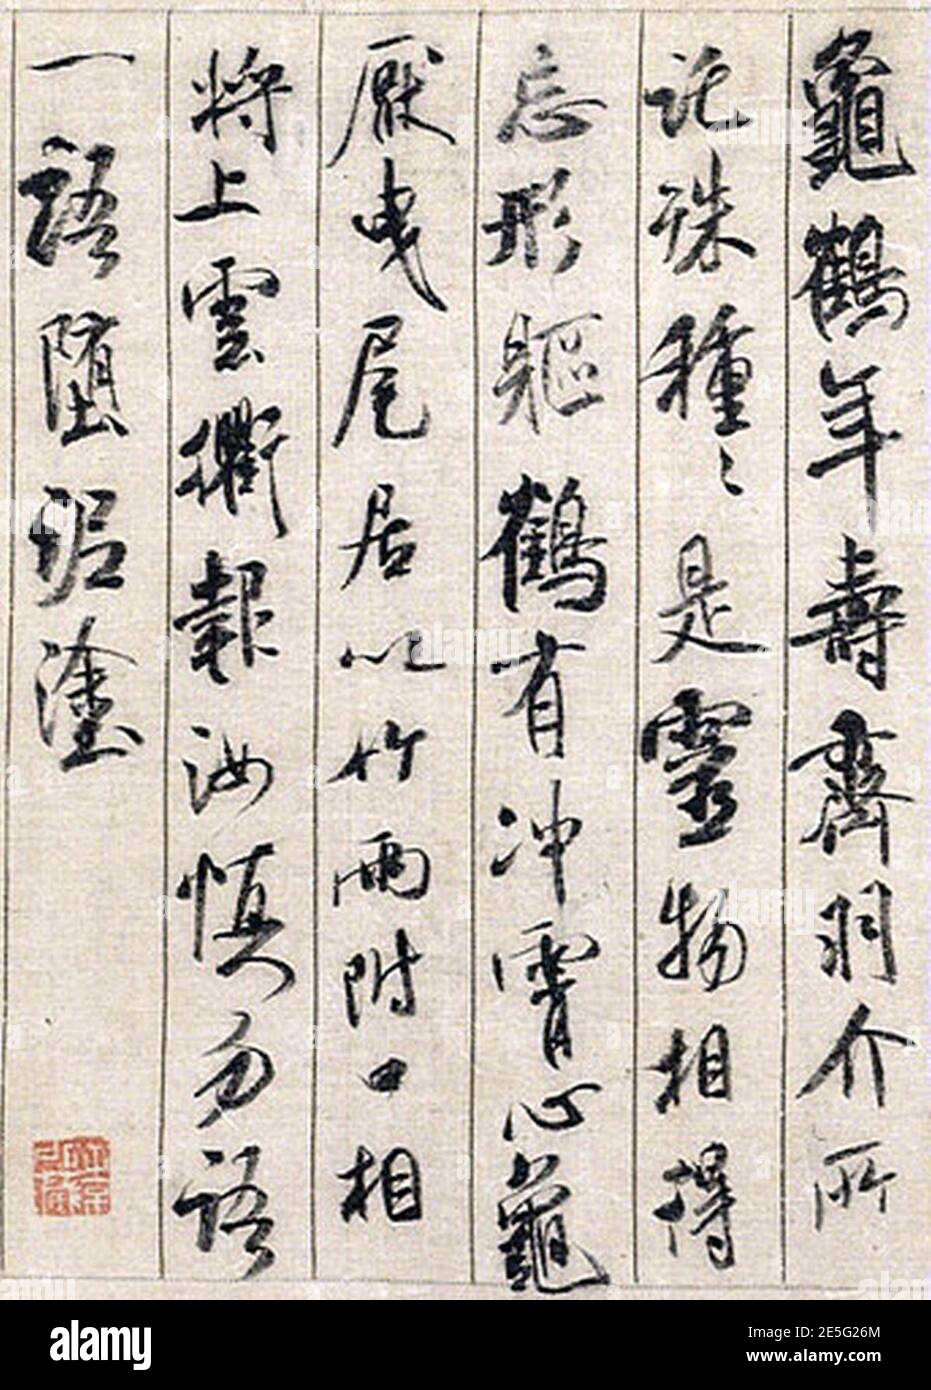 龜鶴年壽齊羽介所
託殊種〻是靈物相得
忘形軀鶴有冲霄心龜
厭曳尾居以竹兩附口相
將上雲衢報汝慎勿語
一語墮泥塗
alamy
Image ID: 2E5G26M
www.alamy.com